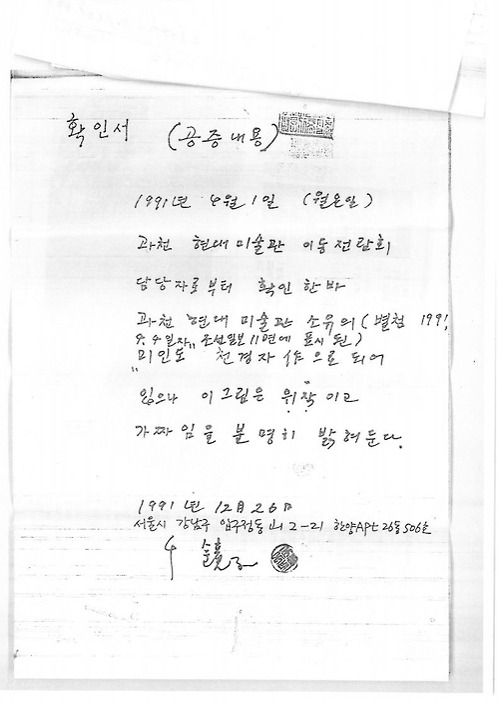 확인서 (공증내용)
1991년 4월 1일 (월요일)
과천 현대미술관 이동전람회
담당자로부터 확인한바
과천 현대 미술관 소유의 (별첨 1991.
9.4일자 "조선일보 11면에 표시 된)
"미인도" 천경자 作으로 되어
있으나 이그림은 위작이고
가짜임을 분명히 밝혀둔다.
1991년 12월 26日
서울시 강남구 압구정동 山 2-21 한양APt 26동506호
鏡子